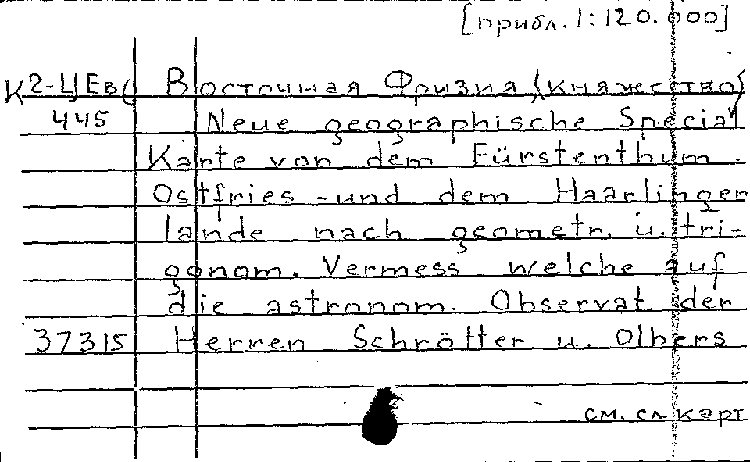 [прибл. 1:120.000]
К2-ЦЕв( Восточная Фризия (княжество)
445 Neue geographische Special
Karte von dem Fürstenthum
Ostfries-und dem Haarlinger
lande nach geometr. u. tri-
gonom. Vermess welche auf
die astronom. Observat der
37315 Herren Schrötter u. Olbers
см. сл карт